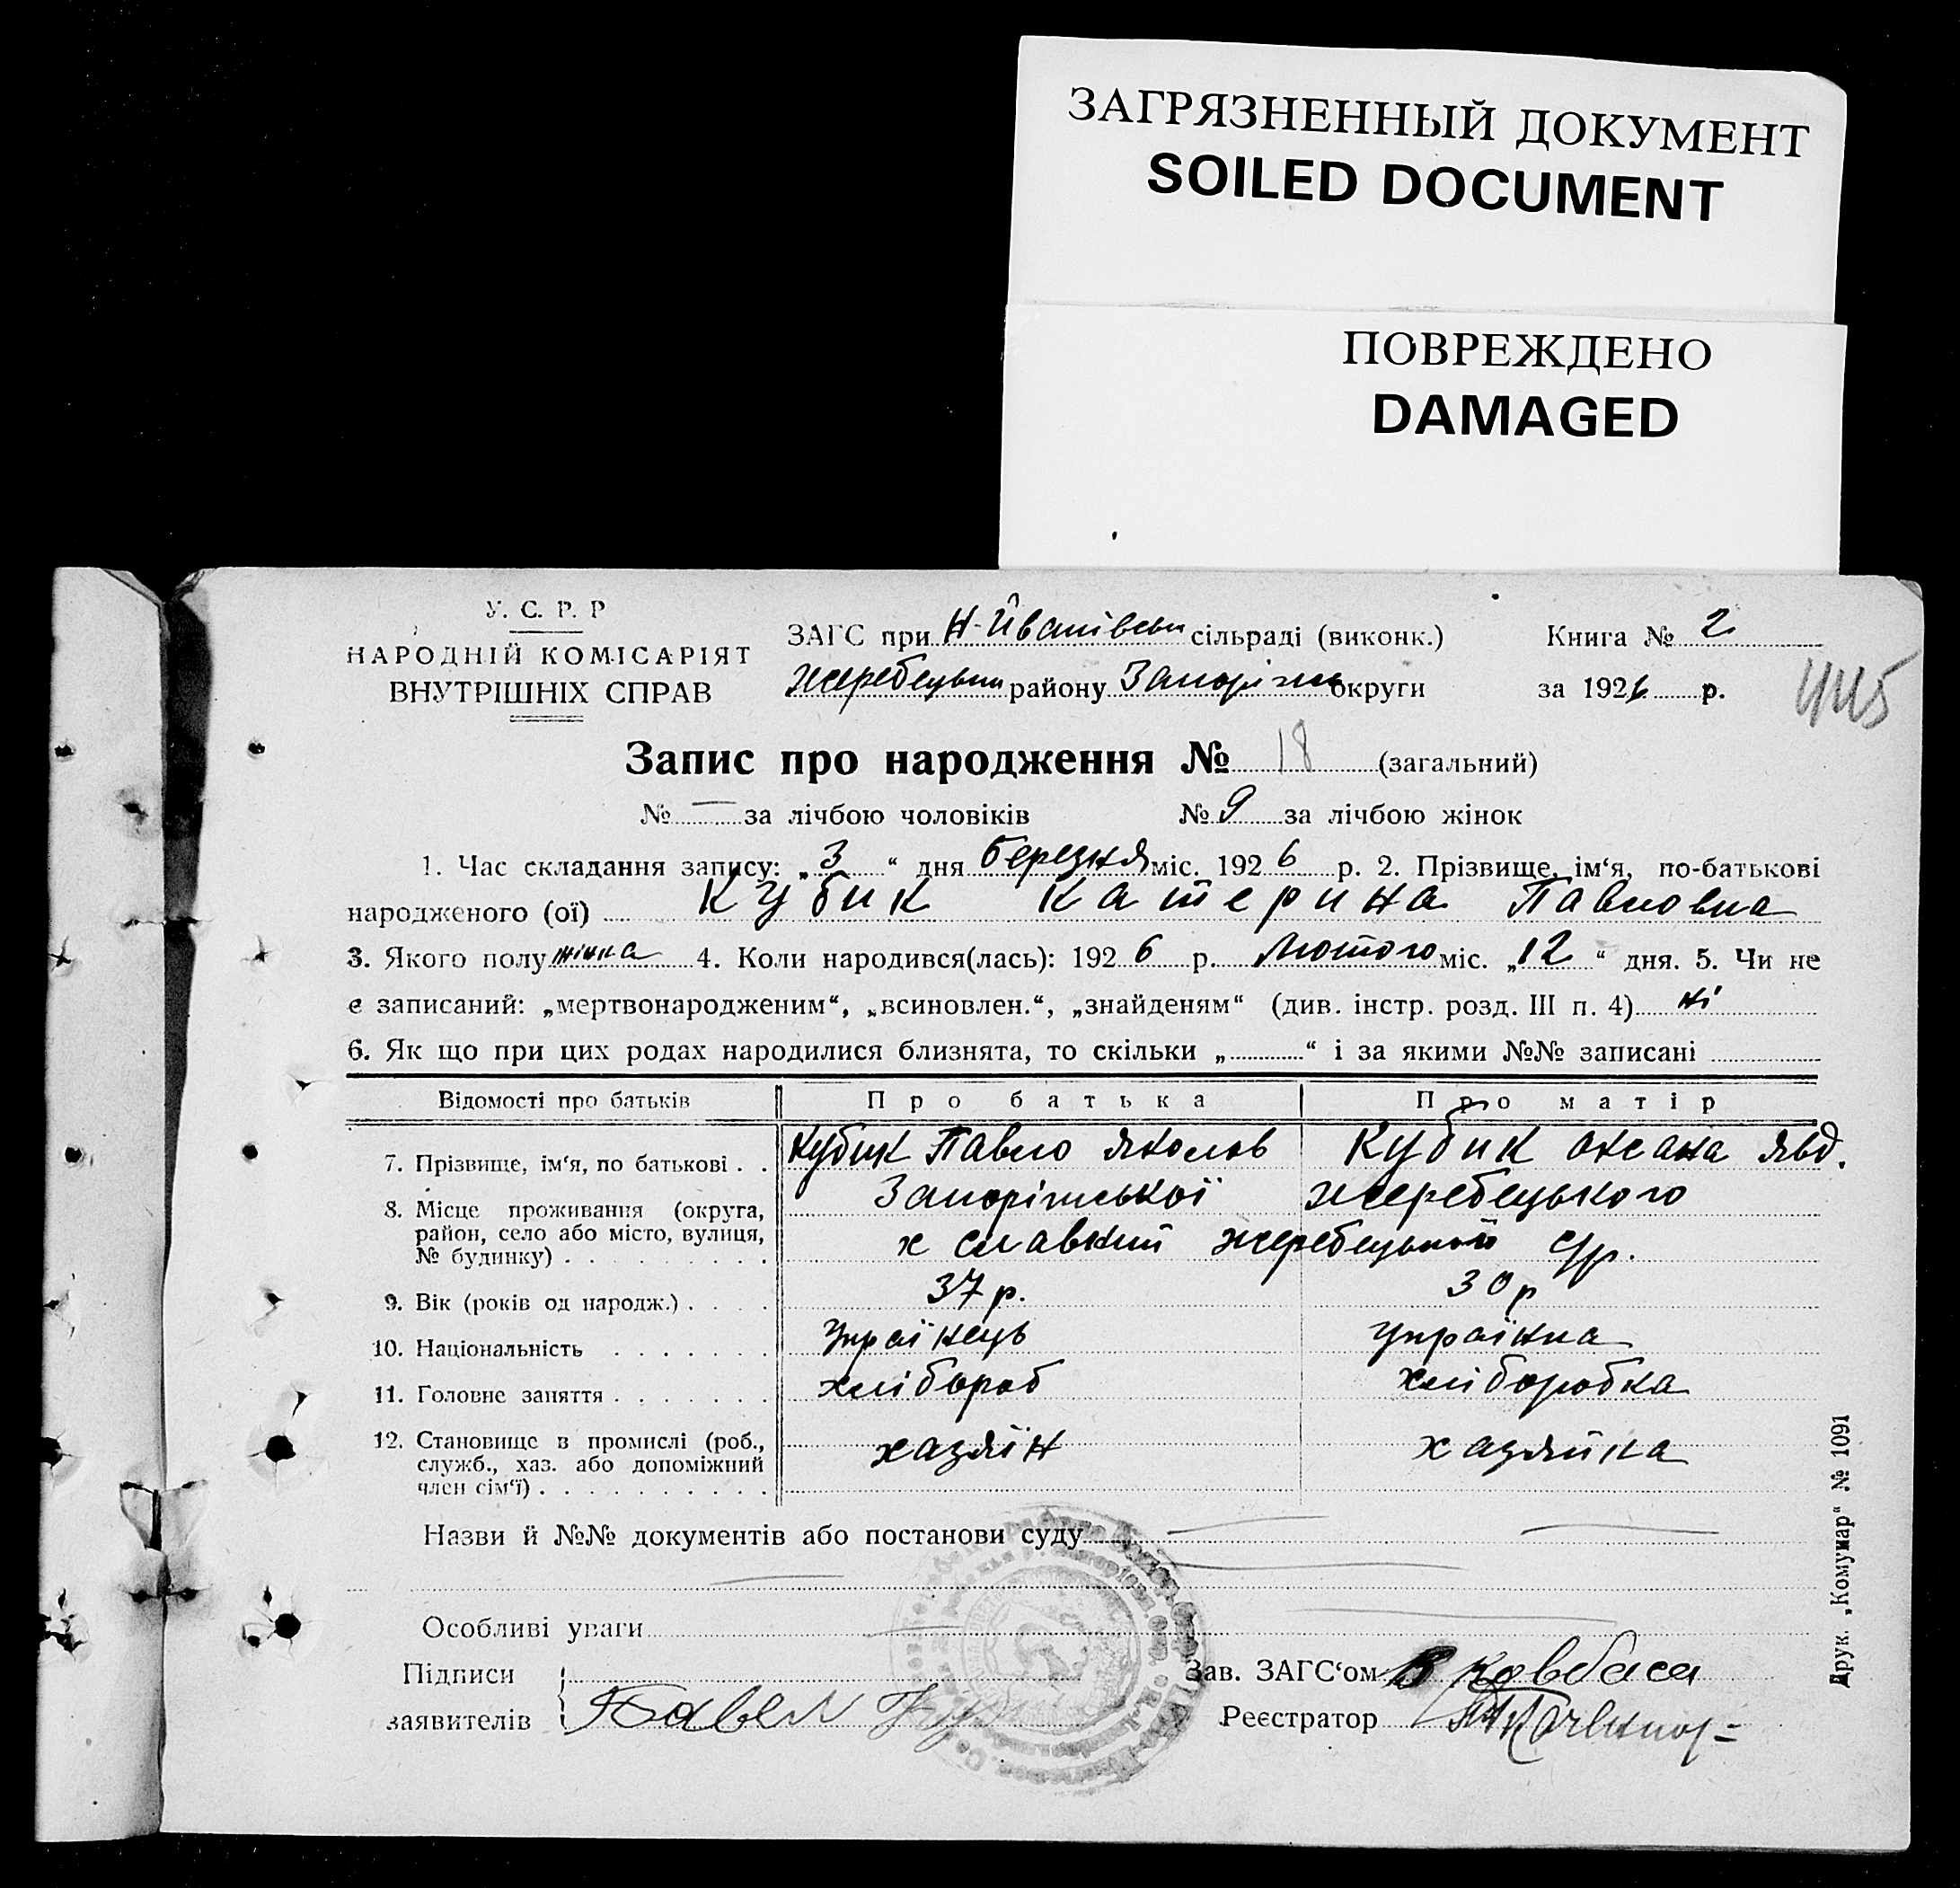 ЗАГРЯЗНЕННЫЙ ДОКУМЕНТ
SOILED DOCUMENT
ПОВРЕЖДЕНО
DAMAGED
У. С. Р. Р
НАРОДНІЙ КОМІСАРІЯТ
ВНУТРІШНІХ СПРАВ
ЗАГС при Н-Йванівськ сільраді (виконк.) Книга № 2
Жеребецьк району Запоріжь округи за 1926 р.
Запис про народження № 18 (загальний)
№ — за лічбою чоловіків № 9 за лічбою жінок
1. Час складання запису: „3“ дня березня міс. 1926 р. 2. Прізвище, ім‘я, по-батькові
народженого (ої) Кубик Катерина Павловна
3. Якого полу жінка 4. Коли народився(лась): 1926 р. Лютого міс. „12“ дня. 5. Чи не
є записаний: „мертвонародженим“, „всиновлен.“, „знайденям“ (див. інстр. розд. III п. 4) ні
6. Як що при цих родах народилися близнята, то скільки „ “ і за якими №№ записані
Відомості про батьків Про батька Про матір
7. Прізвище, ім‘я, по батькові . . Кубик Павло Яколов Кубик Оксана Явд.
8. Місце проживання (округа, Запоріжської Жеребецького
район, село або місто, вулиця,
№ будинку) . . . . . . . . . х славкий жеребецької с/р.
9. Вік (років од народж.) . . . . 37 р. 30 р
10. Національність . . . . . . . Українець Українка
11. Головне заняття . . . . . . . хлібороб хліборобка
12. Становище в промислі (роб., хазяїн хазяйка
служб., хаз. або допоміжний
член сім‘ї) . . . . . . . . . .
Назви й №№ документів або постанови суду
Особливі уваги
Підписи Зав. ЗАГС‘ом В Ковбаса
заявителів Павел Реєстратор
Друк. „Комунар“ № 1091